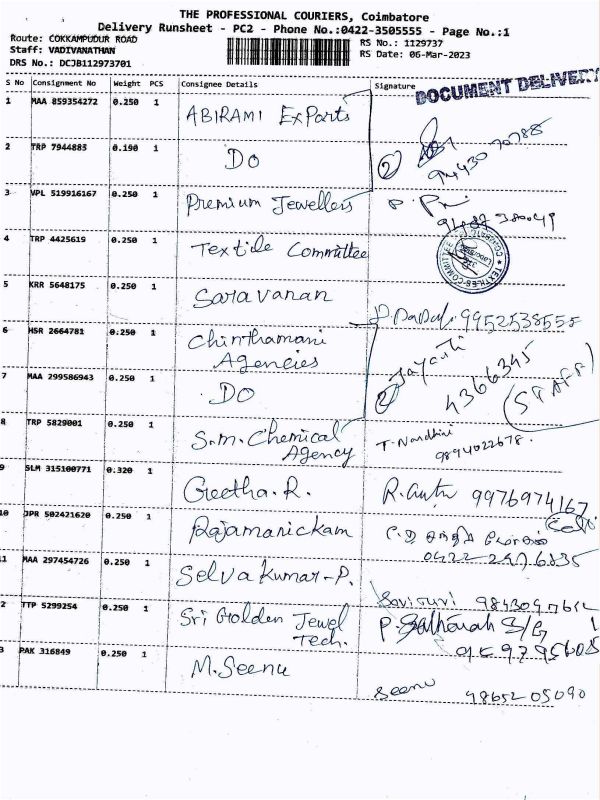 THE PROFESSIONAL COURIERS, Coimbatore
Delivery Runsheet - PC2 - Phone No.:0422-3505555 - Page No.:1
Route: COKKAMPUDUR ROAD
Staff: VADIVANATHAN
DRS No.: DCJB112973701
RS No.: 1129737
RS Date: 06-Mar-2023
S No Consignment No Weight PCS Consignee Details Signature
DOCUMENT DELIVERY
1 MAA 859354272 0.250 1 ABIRAMI Exports
2 TRP 7944885 0.190 1 DO 2 94430 70785
3 VPL 519916167 0.250 1 Premium Jewellers
4 TRP 4425619 0.250 1 Textile Committee
TEXTILES COMMITTEE
COIMBATORE
5 KRR 5648175 0.250 1 Saravanan 9952538555
6 HSR 2664781 0.250 1 Chinthamani
Agencies
Jayanti
4366345
(STAFF)
7 MAA 299586943 0.250 1 DO 2
8 TRP 5829001 0.250 1 S.m. Chemical
Agency
T. Nandhini
9894022678.
9 SLM 315100771 0.320 1 Geetha.R. 9976974167
10 JPR 502421620 0.250 1 Rajamanickam
0422-2476835
11 MAA 297454726 0.250 1 Selva Kumar-P.
2 TTP 5299254 0.250 1 Sri Golden Jewel
Tech.
3 PAK 316849 0.250 1 M.Seenu
Seenu 98652 05090